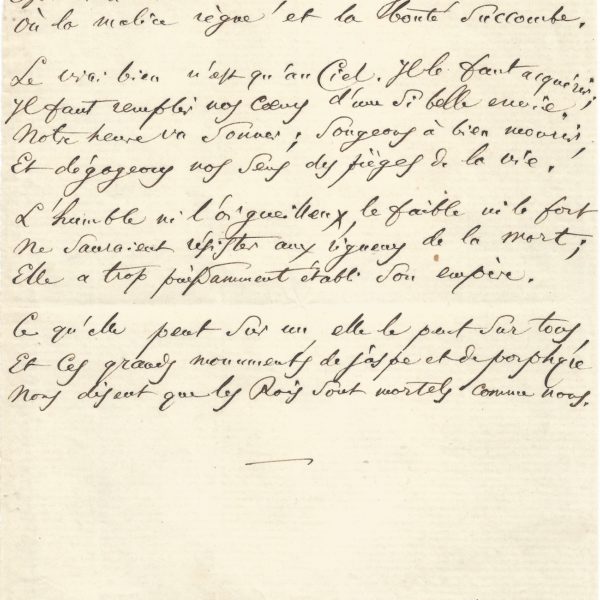 Où la malice règne et la bonté succombe.
Le vrai bien n'est qu'au Ciel. Il le faut acquérir;
Il faut remplir nos Cœurs d'une si belle envie
Notre heure va sonner; songeons à bien mourir
Et dégageons nos sens des pièges de la vie.
L'humble ni l'orgueilleux, le faible ni le fort
Ne sauraient résister aux rigueurs de la mort;
Elle a trop puissamment établi son empire.
Ce qu'elle peut sur un elle le peut sur tous
Et ces grands monuments de jaspe et de porphyre
Nous disent que les Rois sont mortels comme nous.